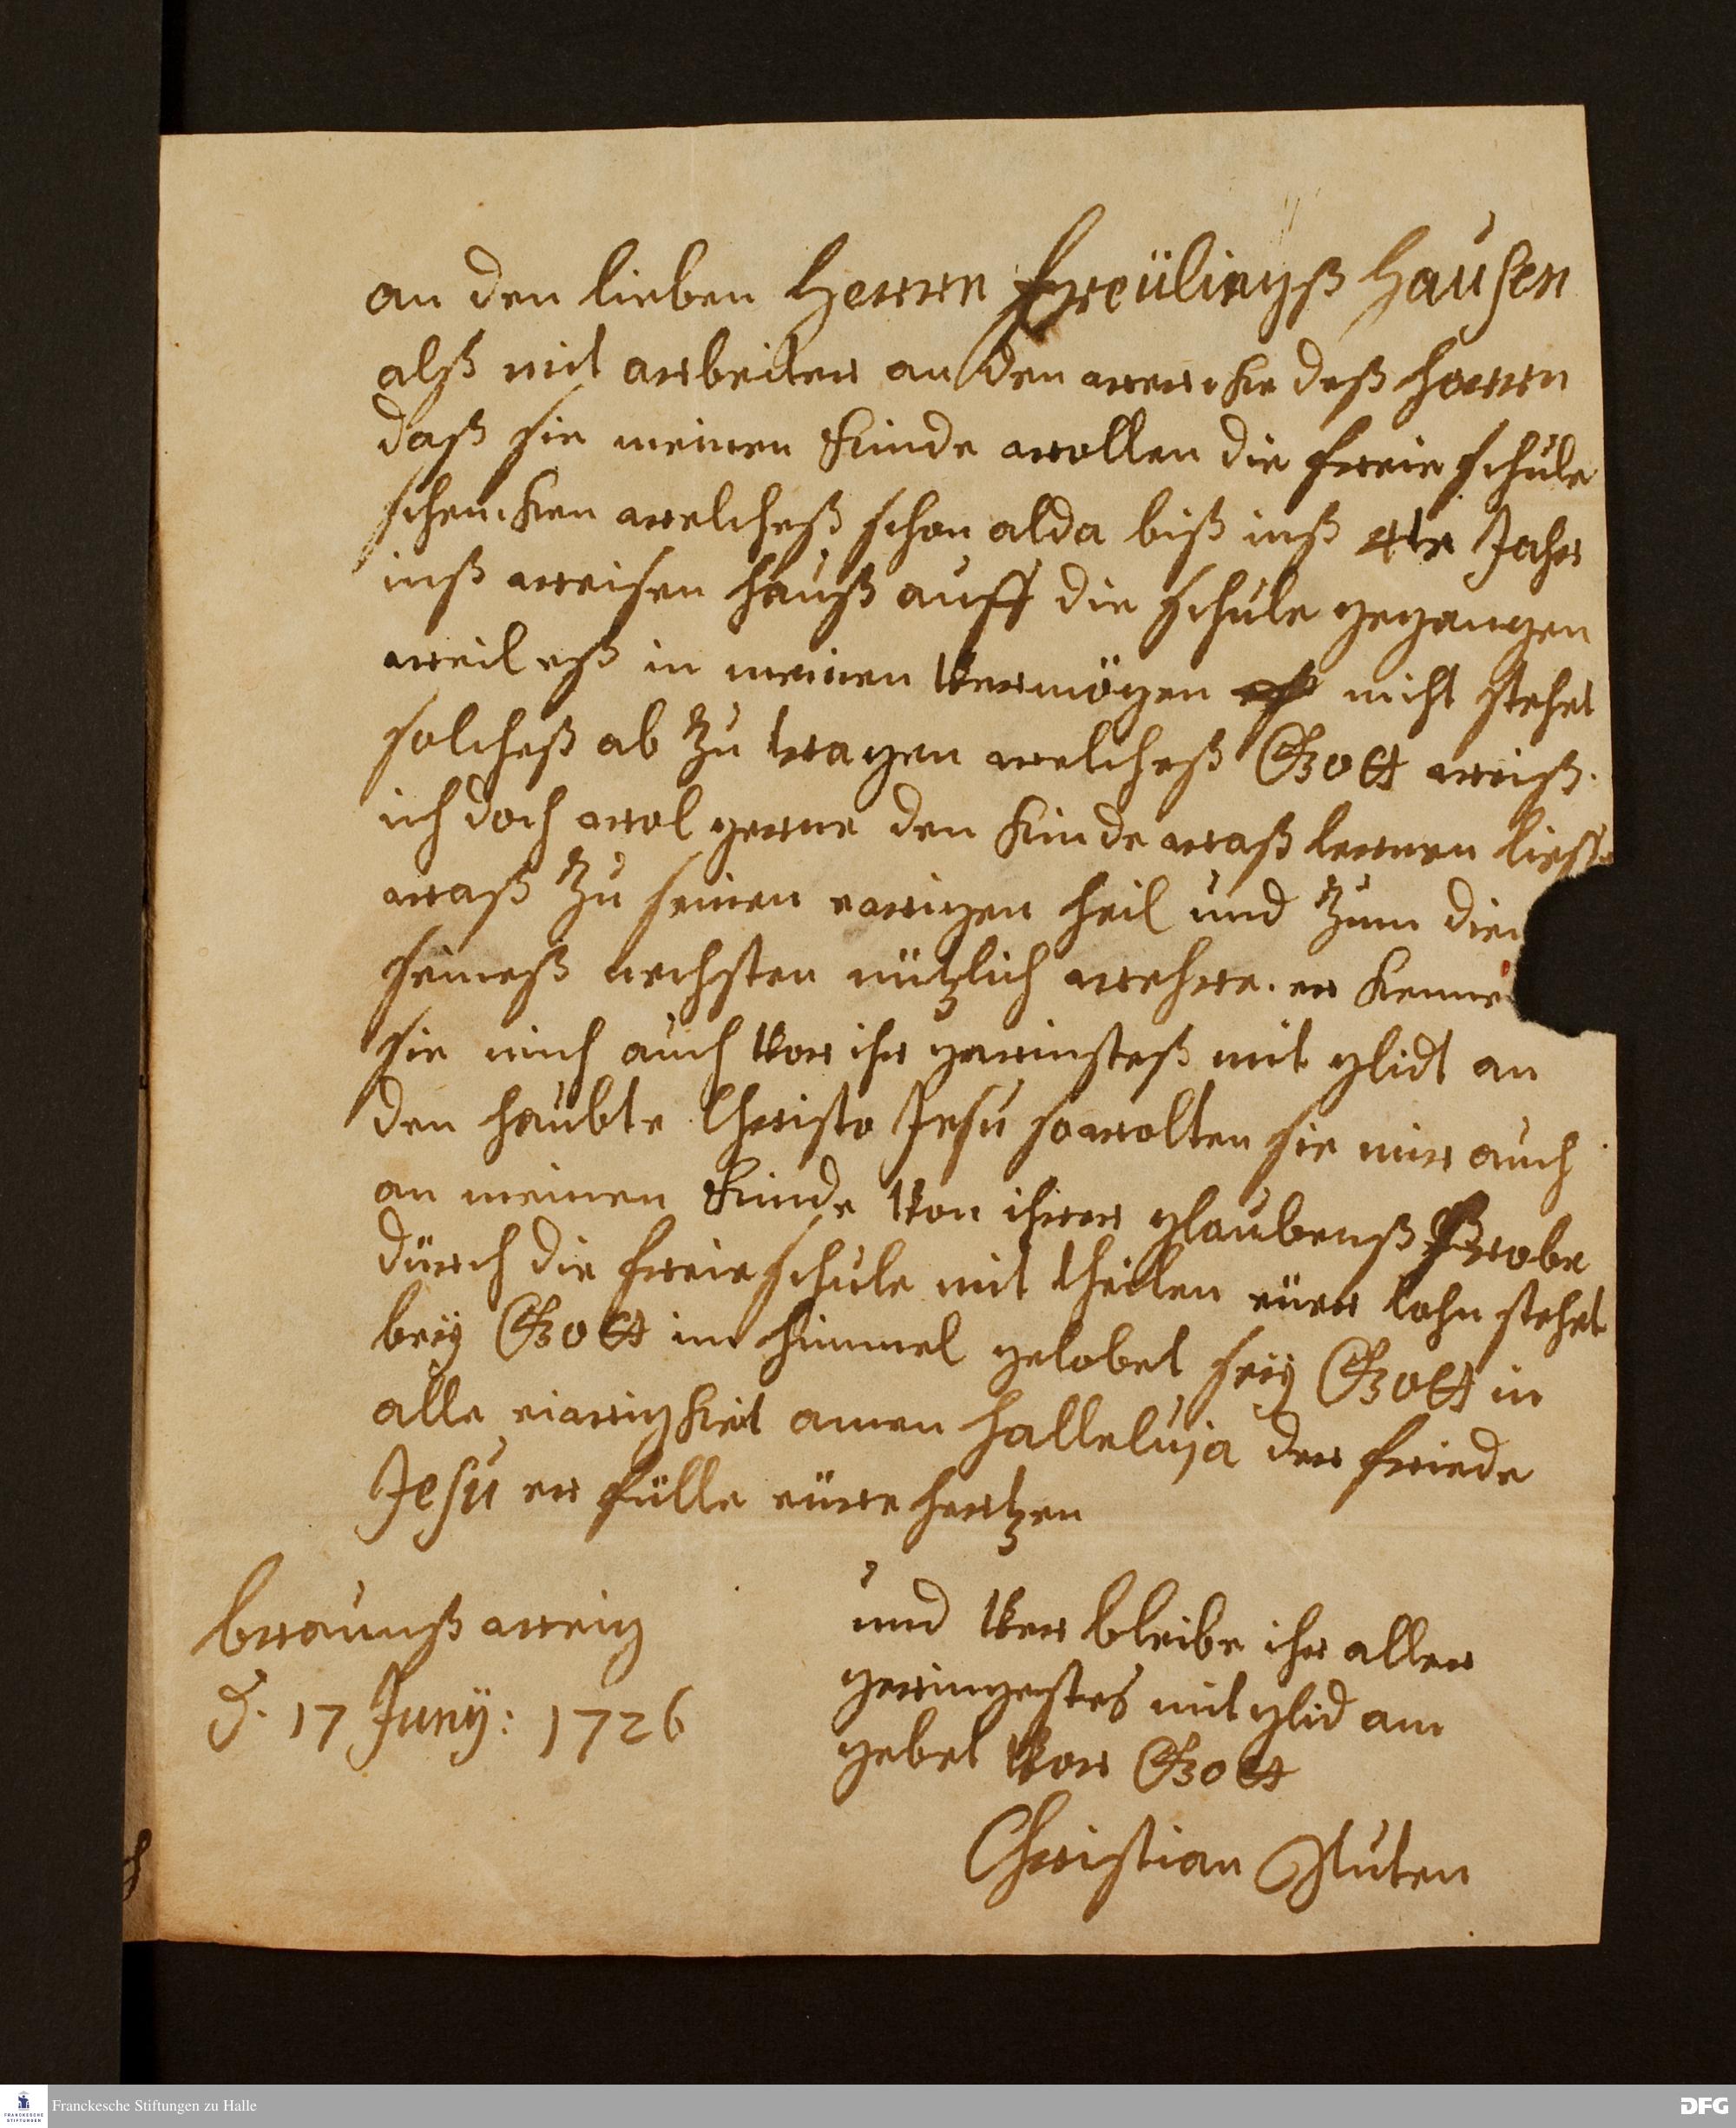 an den lieben Herrn Freülingß Hausen
alß mit arbeiter an den wercke deß herrn
daß sie meinen Kinde wollen die freie schule
schencken welcheß schon alda biß inß 4te Jahr
inß weisen hauß auff die schule gegangen
weil eß in meinen Vermögen nicht stehet
solcheß ab zu tragen welcheß Gott weiß.
ich doch wol gerne den Kinde waß lernen ließe
waß zu seinen ewigen heil und zum dien
seineß nechsten nützlich wehre. er kenne
sie mich auch vor ihr geringsteß mit glidt an
den haubte Christo Jesu so wolten sie mir auch
an meinen Kinde von ihrer glaubenß Probe
durch die freie schule mit theilen eüer lohn stehet
beÿ Gott im himmel gelobet seÿ Gott in
alle ewigkeit amen Halleluja der friede
Jesu er fülle eüre hertzen
braunßweig
d. 17 Junÿ: 1726
und Ver bleibe ihr aller
geringestes mit glid am
gebet vor Gott
Christian
Franckesche Stiftungen zu Halle
FRANCKESCHE STIFTUNGEN
DFG